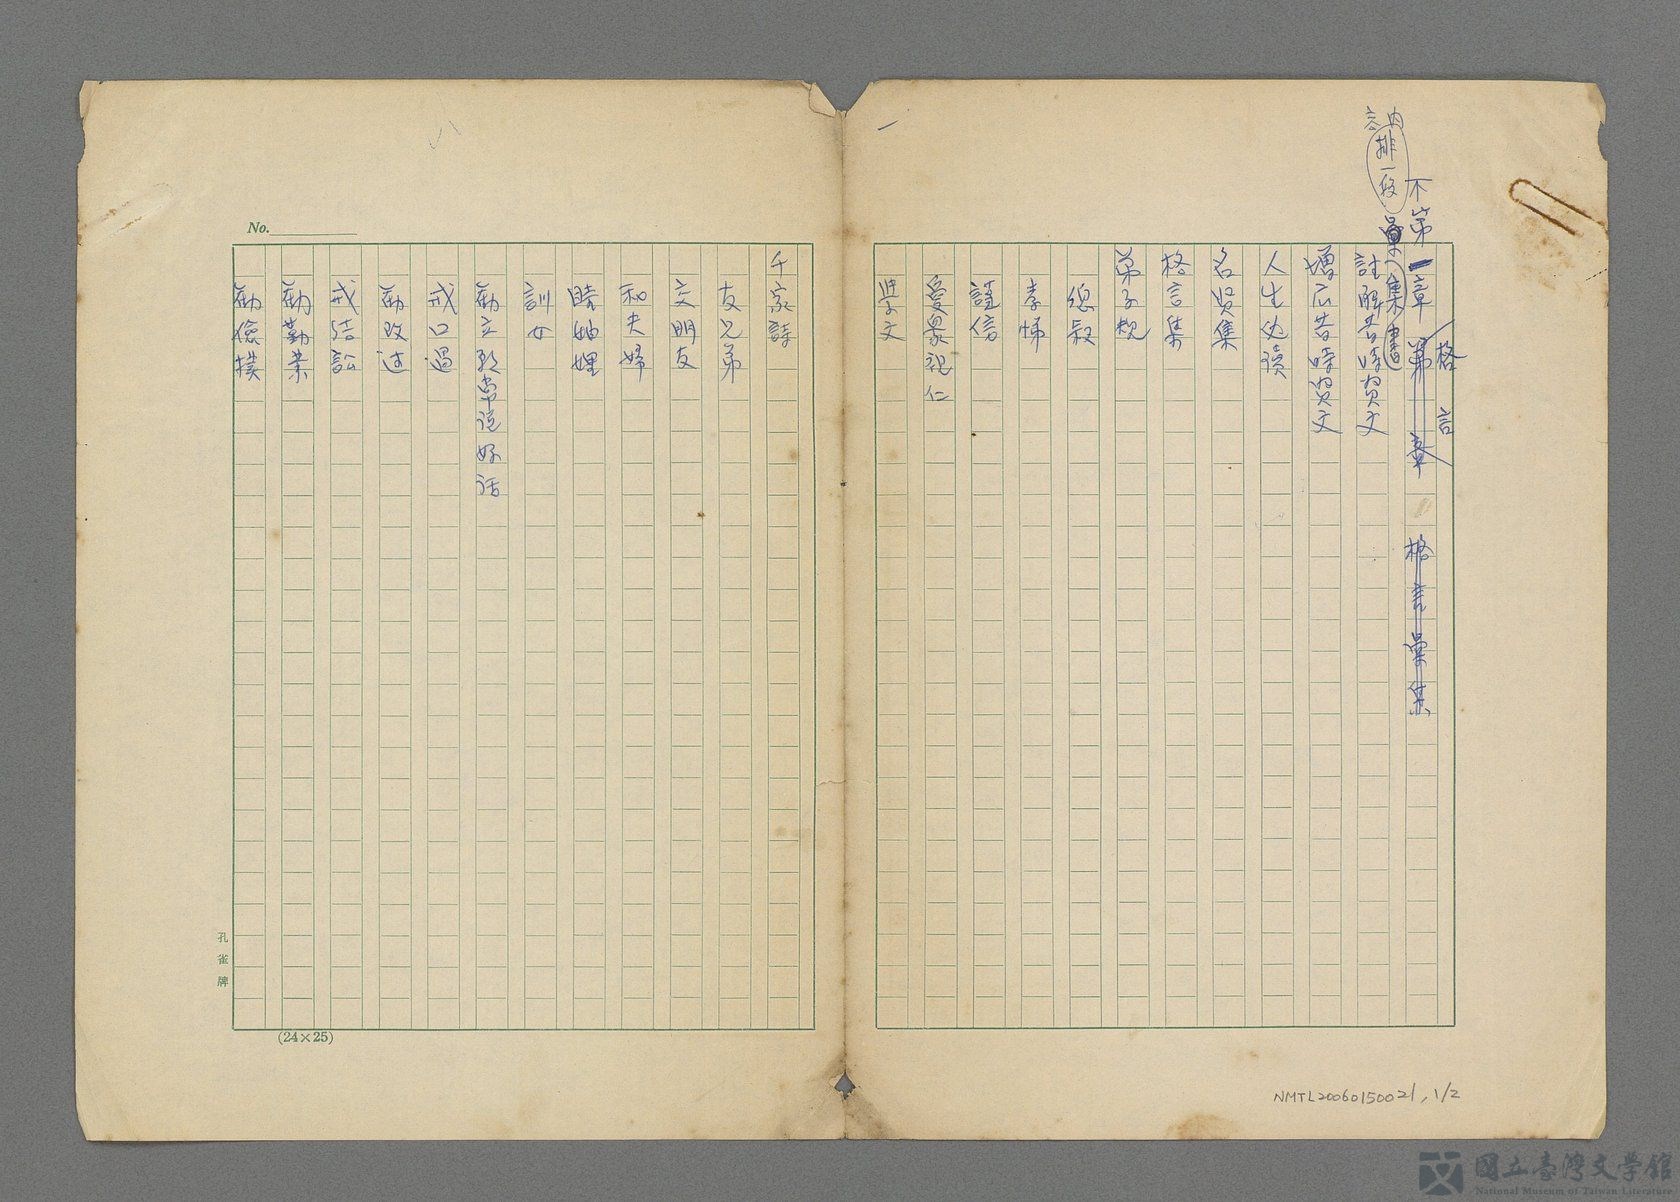 內容
排一段
不第一章
格言
第 章 格言彙集
彙集書
註解昔時賢文
增広昔時賢文
人生必讀
名賢集
格言集
弟子規
總叙
孝悌
謹信
愛衆親仁
學文
千家詩
友兄弟
交朋友
和夫婦
睦妯娌
訓女
勸立
常說好話
戒口過
勸改过
戒結訟
勸勤業
勸儉樸
No.
孔雀牌
(24×25)
NMTL20060150021, 1/2
國立臺灣文學館
National Museum of Taiwan Literature